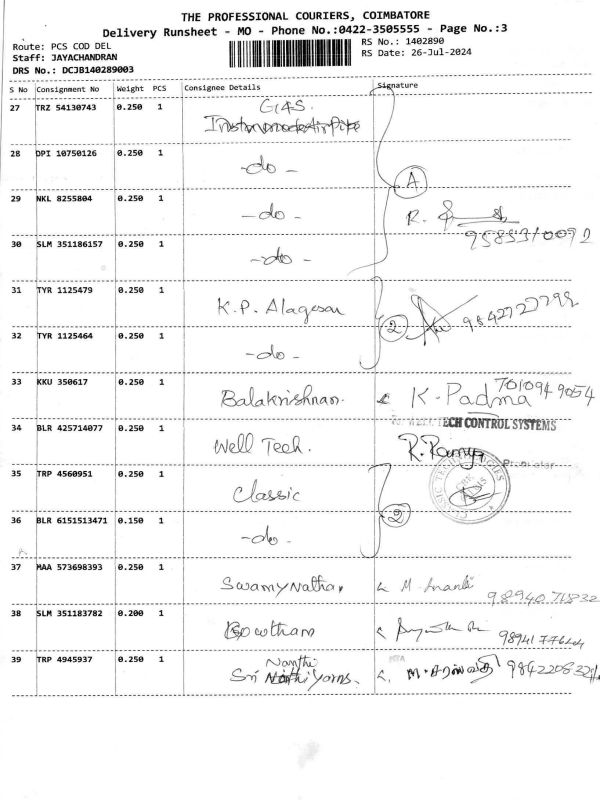 THE PROFESSIONAL COURIERS, COIMBATORE
Delivery Runsheet - MO - Phone No.:0422-3505555 - Page No.:3
Route: PCS COD DEL
Staff: JAYACHANDRAN
DRS No.: DCJB140289003
RS No.: 1402890
RS Date: 26-Jul-2024
S No Consignment No Weight PCS Consignee Details Signature
27 TRZ 54130743 0.250 1
28 DPI 10750126 0.250 1 -do-
29 NKL 8255804 0.250 1 -do- R.
30 SLM 351186157 0.250 1 -do- 9585310092
31 TYR 1125479 0.250 1 K.P. Alagesan
32 TYR 1125464 0.250 1 -do- 2
33 KKU 350617 0.250 1 Balakrishnan. K. Padma 7010949054
TECH CONTROL SYSTEMS
34 BLR 425714077 0.250 1 Well Tech. R. Ramya
35 TRP 4560951 0.250 1 Classic
36 BLR 6151513471 0.150 1 -do- 2
37 MAA 573698393 0.250 1 Swamynathan M.
38 SLM 351183782 0.200 1 Gowtham
39 TRP 4945937 0.250 1 Sri Nanthi Yarns. M.